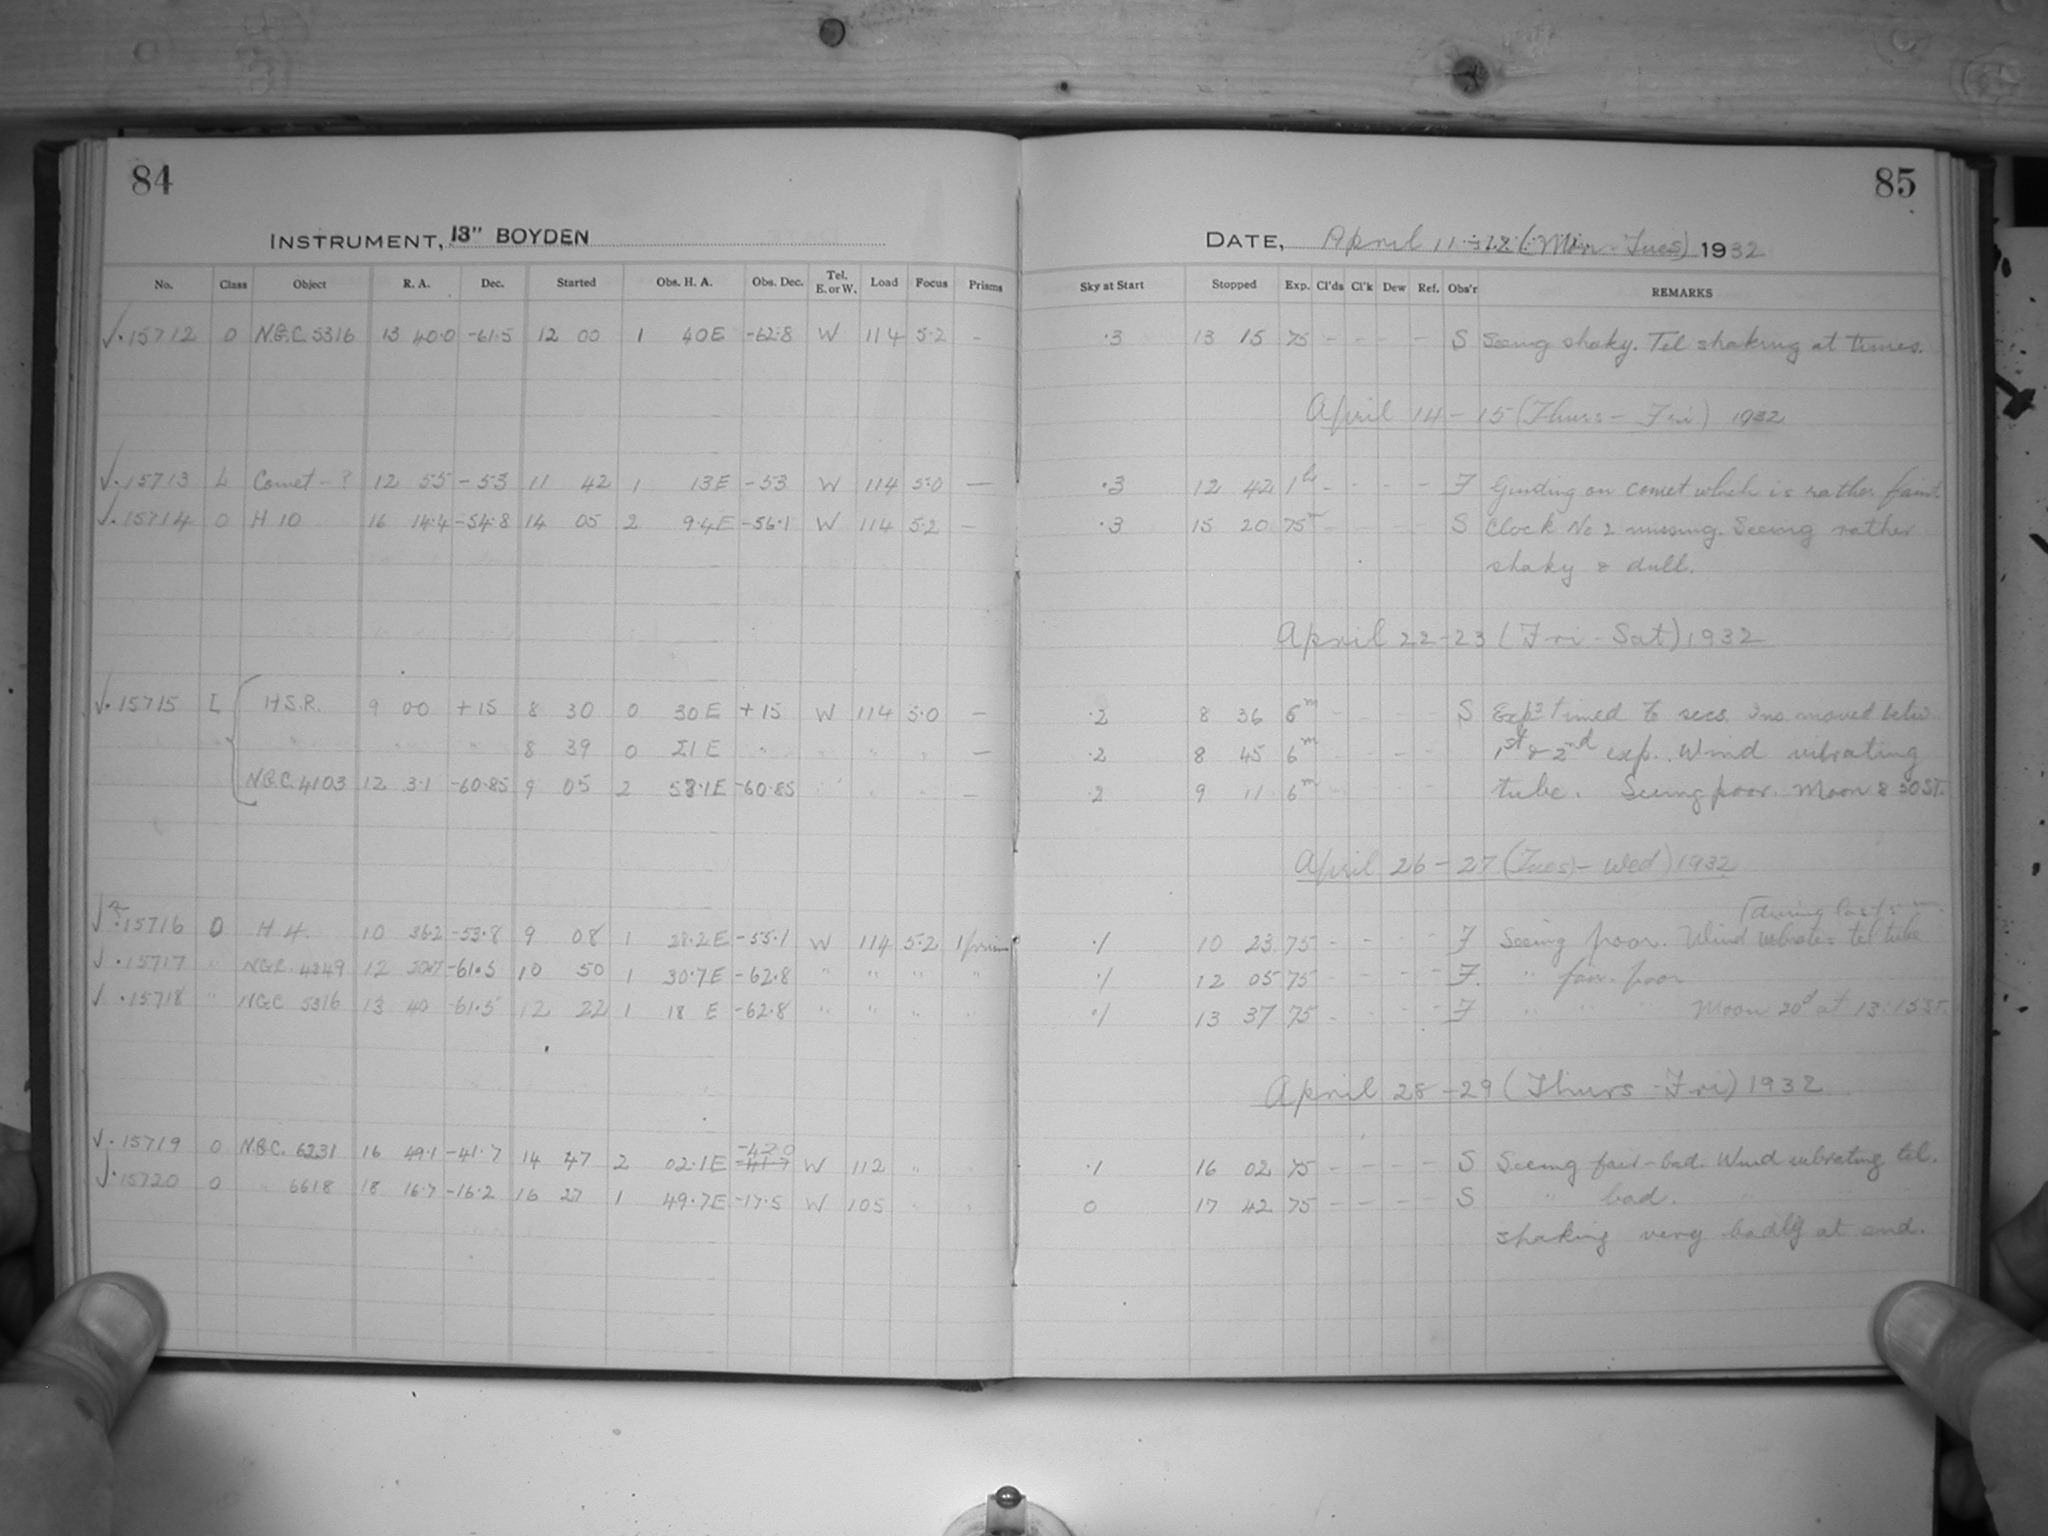 84
INSTRUMENT, 13" BOYDEN
No. Class Object R. A. Dec. Started Obs. H. A. Obs. Dec. Tel. E. or W. Load Focus Prisms
√. 15712 O N.G.C. 5316 13 40.0 -61.5 12 00 1 40 E -62.8 W 114 5.2 -
√. 15713 L Comet - ? 12 55 - 53 11 42 1 13 E -53 W 114 5.0 —
√. 15714 O H 10 16 14.4 -54.8 14 05 2 9.4 E -56.1 W 114 5.2 —
√. 15715 L H S.R. 9 00 +15 8 30 0 30 E +15 W 114 5.0 —
" " " " 8 39 0 21 E " " " " —
N.G.C. 4103 12 3.1 -60.85 9 05 2 58.1 E -60.85 " " " —
√. 15716 O H 4. 10 36.2 -53.8 9 08 1 28.2 E -55.1 W 114 5.2 1 prism
√. 15717 " NGC. 4349 12 -61.5 10 50 1 30.7 E -62.8 " " " "
√. 15718 " NGC 5316 13 40 -61.5 12 22 1 18 E -62.8 " " " "
-42.0
√. 15719 O N.G.C. 6231 16 49.1 -41.7 14 47 2 02.1 E -41.7 W 112 " "
√. 15720 O " 6618 18 16.7 -16.2 16 27 1 49.7 E -17.5 W 105 " "
85
DATE, April 11-12 (Mon - Tues) 1932
Sky at Start Stopped Exp. Cl'ds Cl'k Dew Ref. Obs'r REMARKS
.3 13 15 75 - - - - S Seeing shaky. Tel shaking at times.
April 14 - 15 (Thurs - Fri) 1932
.3 12 42 1h - - - - F Guiding on comet which is rather faint.
.3 15 20 75m - - - - S Clock No 2 missing. Seeing rather
shaky & dull.
April 22-23 (Fri - Sat) 1932
.2 8 36 6m - - - - S Exps timed to secs. Ins moved betw.
.2 8 45 6m - - - - 1st & 2nd exp. Wind vibrating
.2 9 11 6m - - - - tube. Seeing poor. Moon 8 50 ST.
April 26 - 27 (Tues - Wed) 1932
during last
.1 10 23 75 - - - - F Seeing poor. Wind vibrates tel tube
.1 12 05 75 - - - - F. " fair-poor
.1 13 37 75 - - - - F " " Moon 20d at 13:15 ST.
April 28 - 29 (Thurs - Fri) 1932
.1 16 02 75 - - - - S Seeing fair-bad. Wind vibrating tel.
0 17 42 75 - - - - S " bad.
shaking very badly at end.